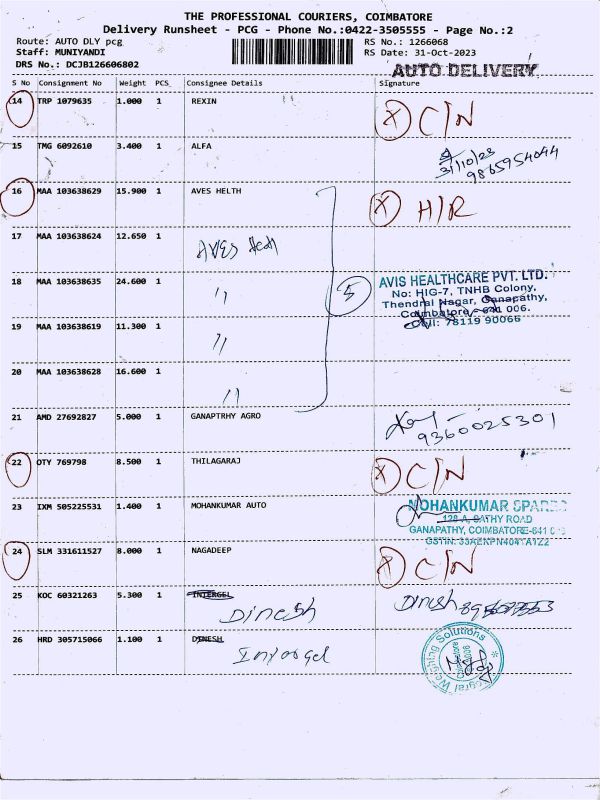 THE PROFESSIONAL COURIERS, COIMBATORE
Delivery Runsheet - PCG - Phone No.:0422-3505555 - Page No.:2
Route: AUTO DLY pcg RS No.: 1266068
Staff: MUNIYANDI RS Date: 31-Oct-2023
DRS No.: DCJB126606802
AUTO DELIVERY
S No Consignment No Weight PCS Consignee Details Signature
14 TRP 1079635 1.000 1 REXIN X C/N
15 TMG 6092610 3.400 1 ALFA
31/10/23
9865954044
16 MAA 103638629 15.900 1 AVES HELTH X H/R
17 MAA 103638624 12.650 1
AVES Heth
18 MAA 103638635 24.600 1 " 5
AVIS HEALTHCARE PVT. LTD.
No: HIG-7, TNHB Colony,
Thendral Nagar, Ganapathy,
Coimbatore - 641 006.
Cell: 78119 90066
19 MAA 103638619 11.300 1 "
20 MAA 103638628 16.600 1 "
21 AMD 27692827 5.000 1 GANAPTRHY AGRO
9360025301
22 OTY 769798 8.500 1 THILAGARAJ X C/N
23 IXM 505225531 1.400 1 MOHANKUMAR AUTO
MOHANKUMAR SPARES
128-A, SATHY ROAD
GANAPATHY, COIMBATORE-641
24 SLM 331611527 8.000 1 NAGADEEP X C/N
25 KOC 60321263 5.300 1 INTERGEL
Dinesh Dinesh
26 HRD 305715066 1.100 1 DINESH
Intergel
Integral Weighing Solutions
Coimbatore